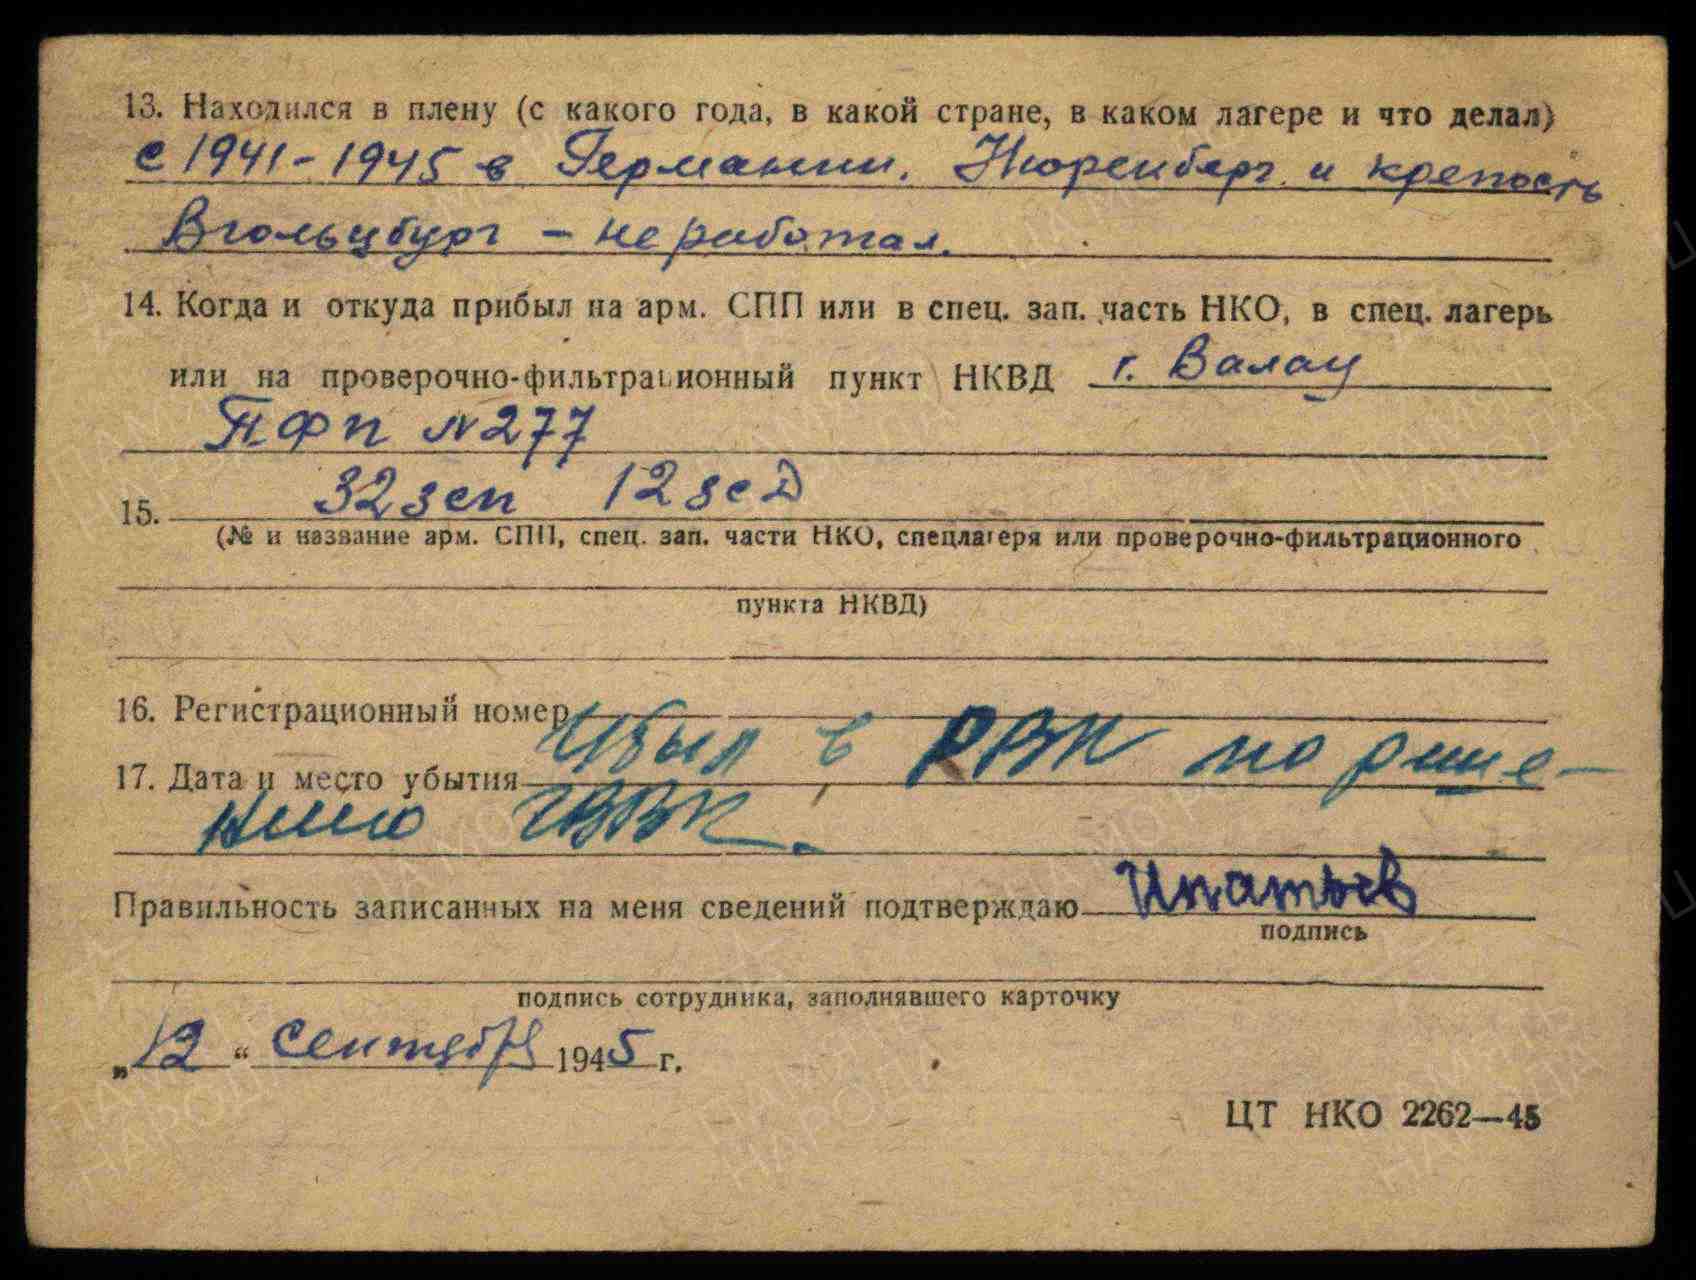 13. Находился в плену (с какого года, в какой стране, в каком лагере и что делал)
с 1941-1945 в Германии. Нюренберг и крепость
Вюльцбург – не работал.
14. Когда и откуда прибыл на арм. СПП или в спец. зап. часть НКО, в спец. лагерь
или на проверочно-фильтрационный пункт НКВД г. Валац
ПФП №277
15. 32 зсп 12 зсд
(№ и название арм. СПП, спец. зап. части НКО, спецлагеря или проверочно-фильтрационного
пункта НКВД)
16. Регистрационный номер
17. Дата и место убытия Убыл в РВК по реше-
нию ГВВК.
Правильность записанных на меня сведений подтверждаю Ипатьев
подпись
подпись сотрудника, заполнявшего карточку
„12“ сентября 1945 г.
ЦТ НКО 2262—45